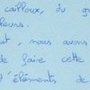 cailloux, du g
leurs.
t, nous avons
de faire cette
d'éléments de